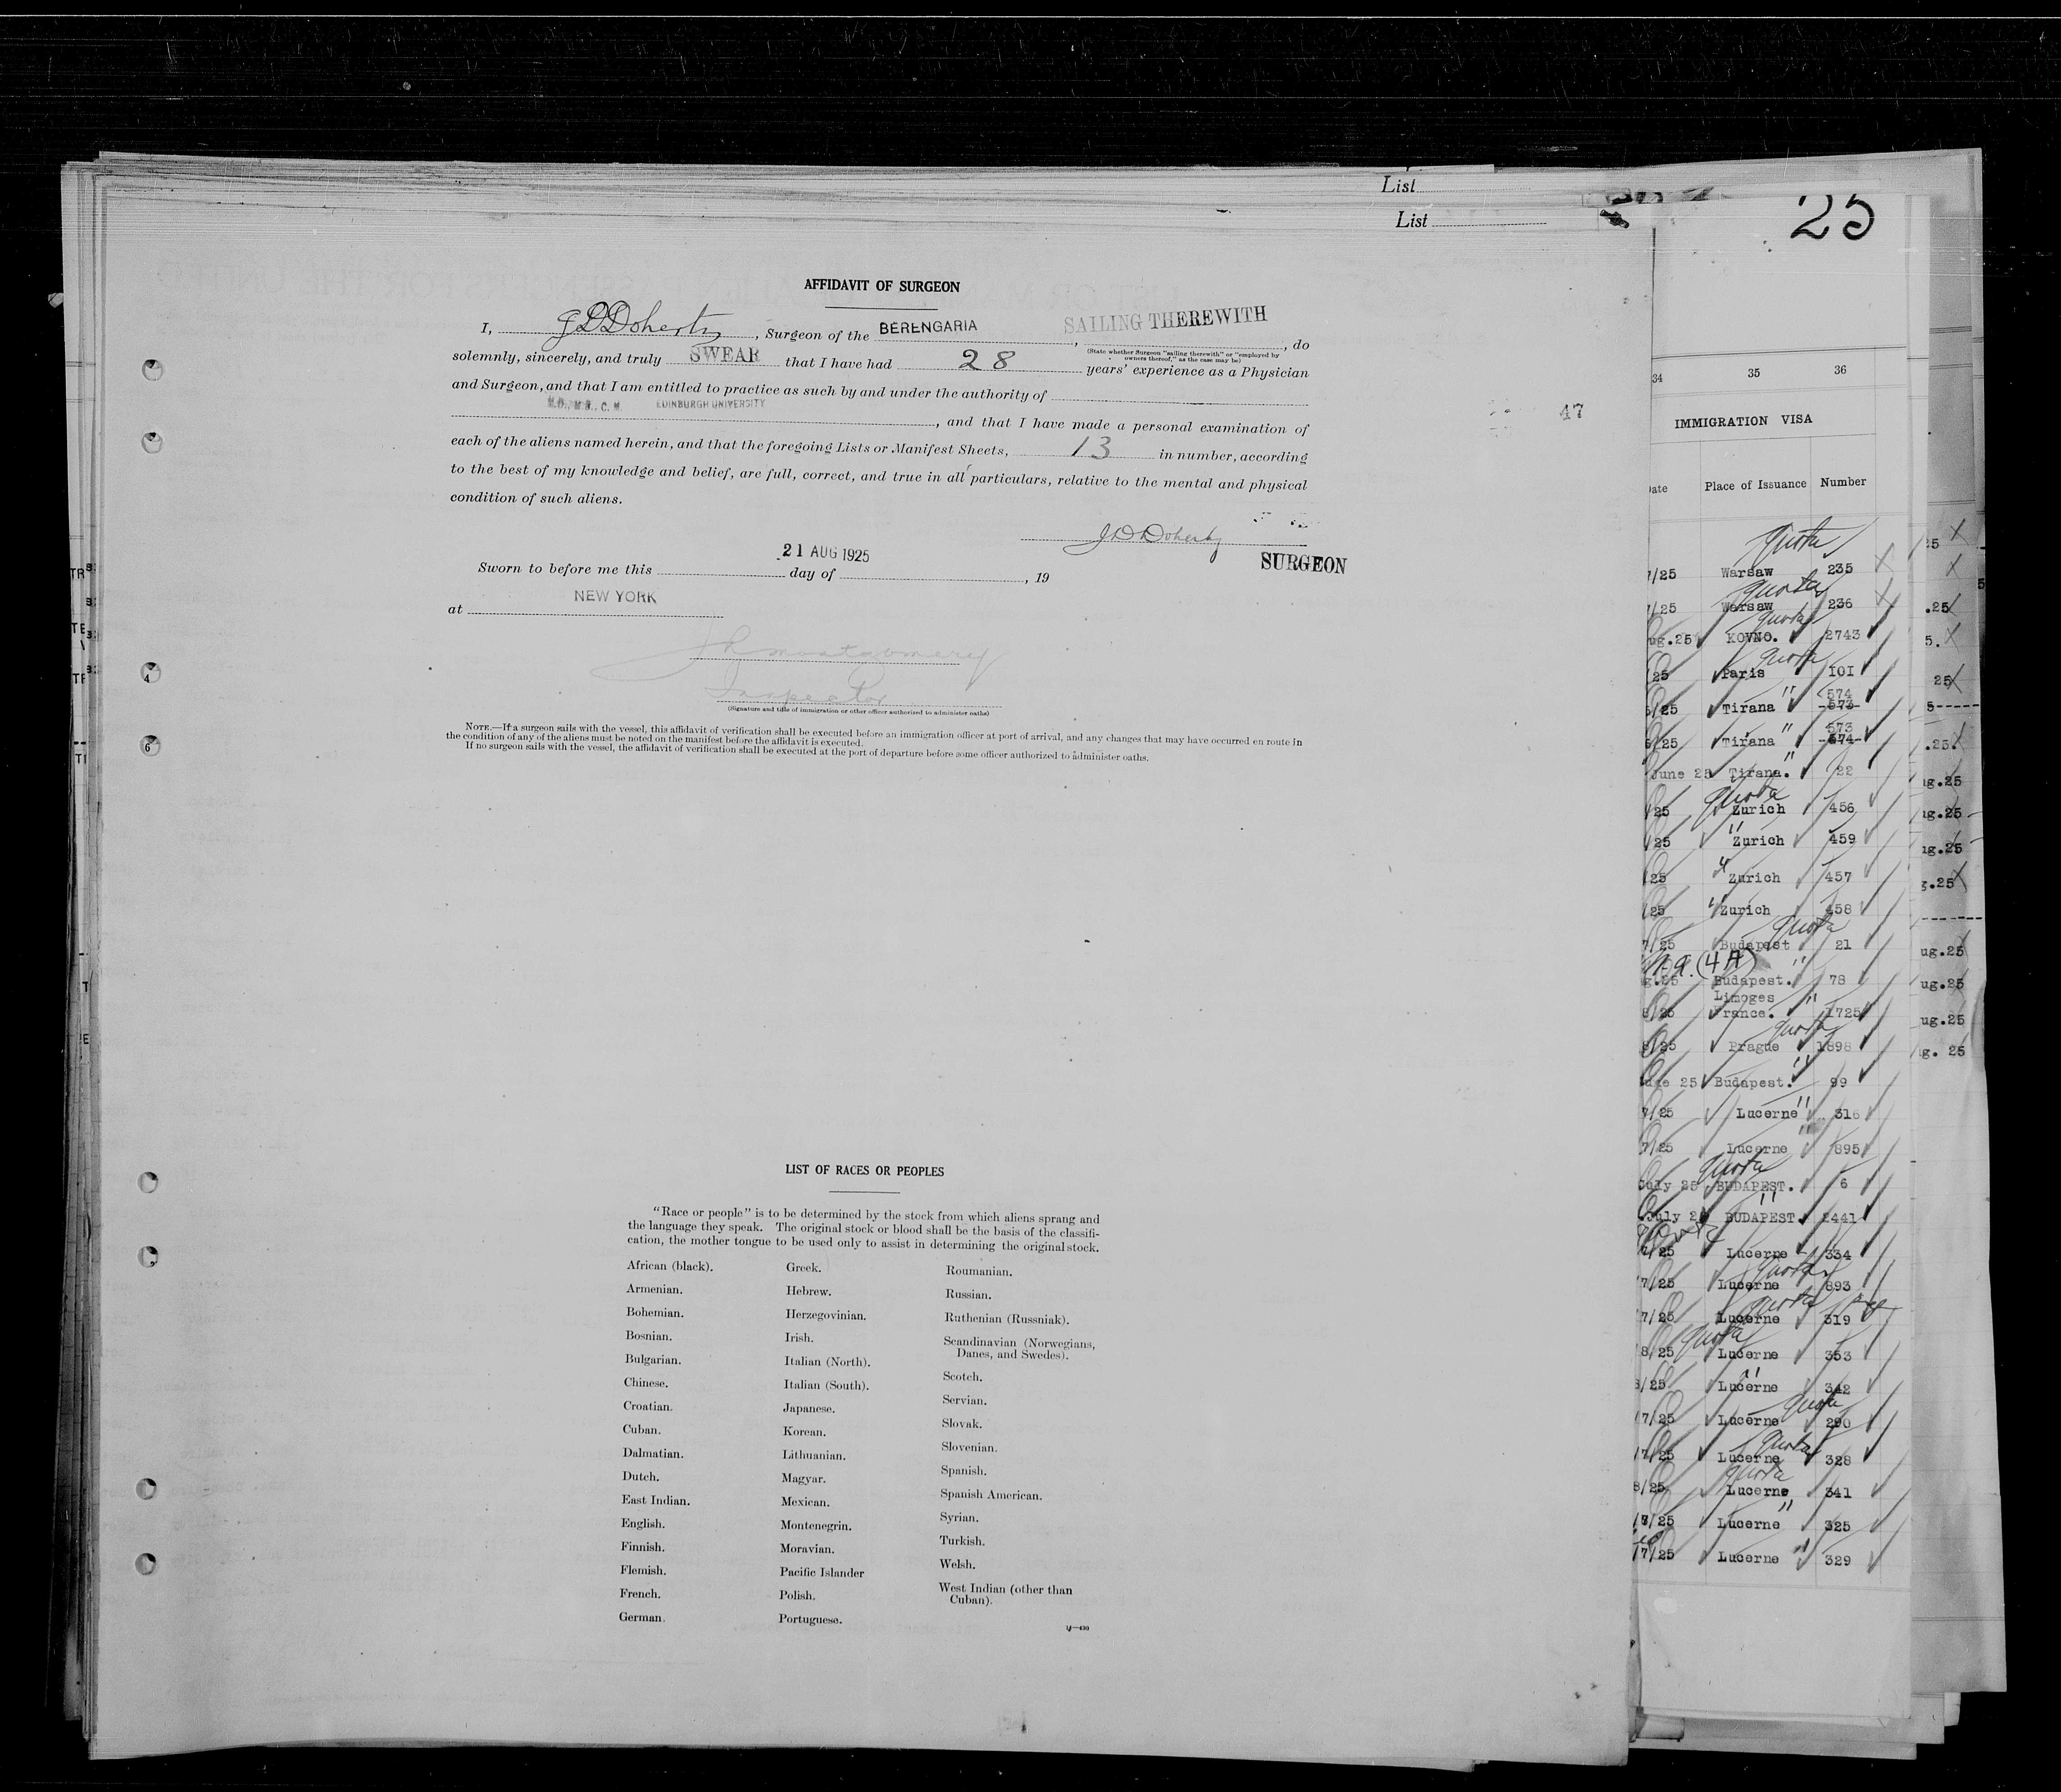 List
List
25
AFFIDAVIT OF SURGEON
I, Doherty, Surgeon of the BERENGARIA, SAILING THEREWITH, do
(State whether Surgeon "sailing therewith" or "employed by owners thereof," as the case may be)
solemnly, sincerely, and truly SWEAR that I have had 28 years' experience as a Physician
and Surgeon, and that I am entitled to practice as such by and under the authority of
M.D., M.B., C.M. EDINBURGH UNIVERSITY
, and that I have made a personal examination of
47
each of the aliens named herein, and that the foregoing Lists or Manifest Sheets, 13 in number, according
to the best of my knowledge and belief, are full, correct, and true in all particulars, relative to the mental and physical
condition of such aliens.
Doherty
SURGEON
21 AUG 1925
Sworn to before me this day of , 19
at NEW YORK
Montgomery
Inspector
(Signature and title of immigration or other officer authorized to administer oaths)
NOTE.—If a surgeon sails with the vessel, this affidavit of verification shall be executed before an immigration officer at port of arrival, and any changes that may have occurred en route in
the condition of any of the aliens must be noted on the manifest before the affidavit is executed.
If no surgeon sails with the vessel, the affidavit of verification shall be executed at the port of departure before some officer authorized to administer oaths.
LIST OF RACES OR PEOPLES
"Race or people" is to be determined by the stock from which aliens sprang and
the language they speak. The original stock or blood shall be the basis of the classifi-
cation, the mother tongue to be used only to assist in determining the original stock.
African (black).
Armenian.
Bohemian.
Bosnian.
Bulgarian.
Chinese.
Croatian.
Cuban.
Dalmatian.
Dutch.
East Indian.
English.
Finnish.
Flemish.
French.
German.
Greek.
Hebrew.
Herzegovinian.
Irish.
Italian (North).
Italian (South).
Japanese.
Korean.
Lithuanian.
Magyar.
Mexican.
Montenegrin.
Moravian.
Pacific Islander
Polish.
Portuguese.
Roumanian.
Russian.
Ruthenian (Russniak).
Scandinavian (Norwegians,
Danes, and Swedes).
Scotch.
Servian.
Slovak.
Slovenian.
Spanish.
Spanish American.
Syrian.
Turkish.
Welsh.
West Indian (other than
Cuban).
34 35 36
IMMIGRATION VISA
ate Place of Issuance Number
Quota
/25 Warsaw 235
Quota
/25 Warsaw 236
Quota
ug.25 KOVNO. 2743
Quota
/25 Paris 101
574
/25 Tirana " 573
573
/25 Tirana " 574
June 25 Tirana. " 22
Quota
/25 Zurich 456
/25 " Zurich 459
/25 " Zurich 457
/25 " Zurich 458
Quota
7/25 Budapest 21
(4A)
g.25 Budapest. " 78
Limoges "
8/25 France. 1725
Quota
8/25 Prague 1898
une 25 Budapest. " 99
7/25 Lucerne " 316
7/25 Lucerne " 895
Quota
July 25 BUDAPEST. 6
July 25 BUDAPEST " 2441
Quota
7/25 Lucerne 334
Quota
7/25 Lucerne 893
Quota
7/25 Lucerne 319
Quota
8/25 Lucerne 353
8/25 Lucerne " 342
Quota
/7/25 Lucerne 290
Quota
/7/25 Lucerne 328
Quota
8/25 Lucerne 341
/8/25 Lucerne " 325
/7/25 Lucerne " 329
25
.25
5.
25
5
.25
ug.25
ug.25
ug.25
g.25
ug.25
ug.25
ug.25
g. 25